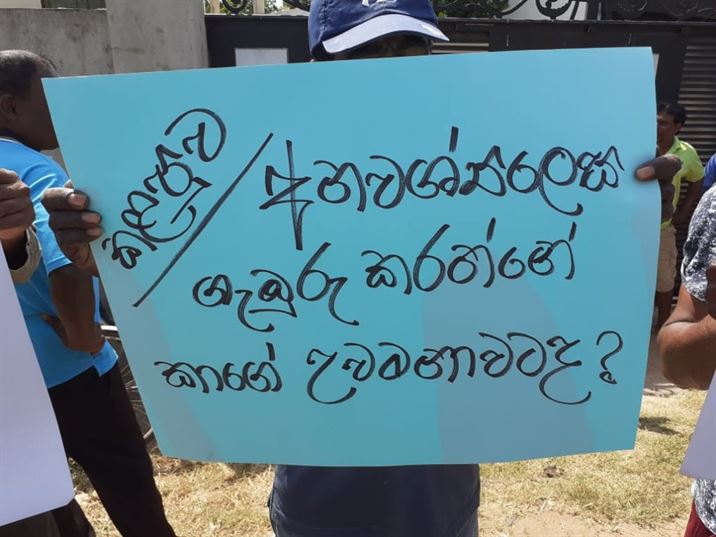 කළපුව / අනවශ්‍යලෙස
ගැඹුරු කරන්නේ
කාගේ උවමනාවටද?